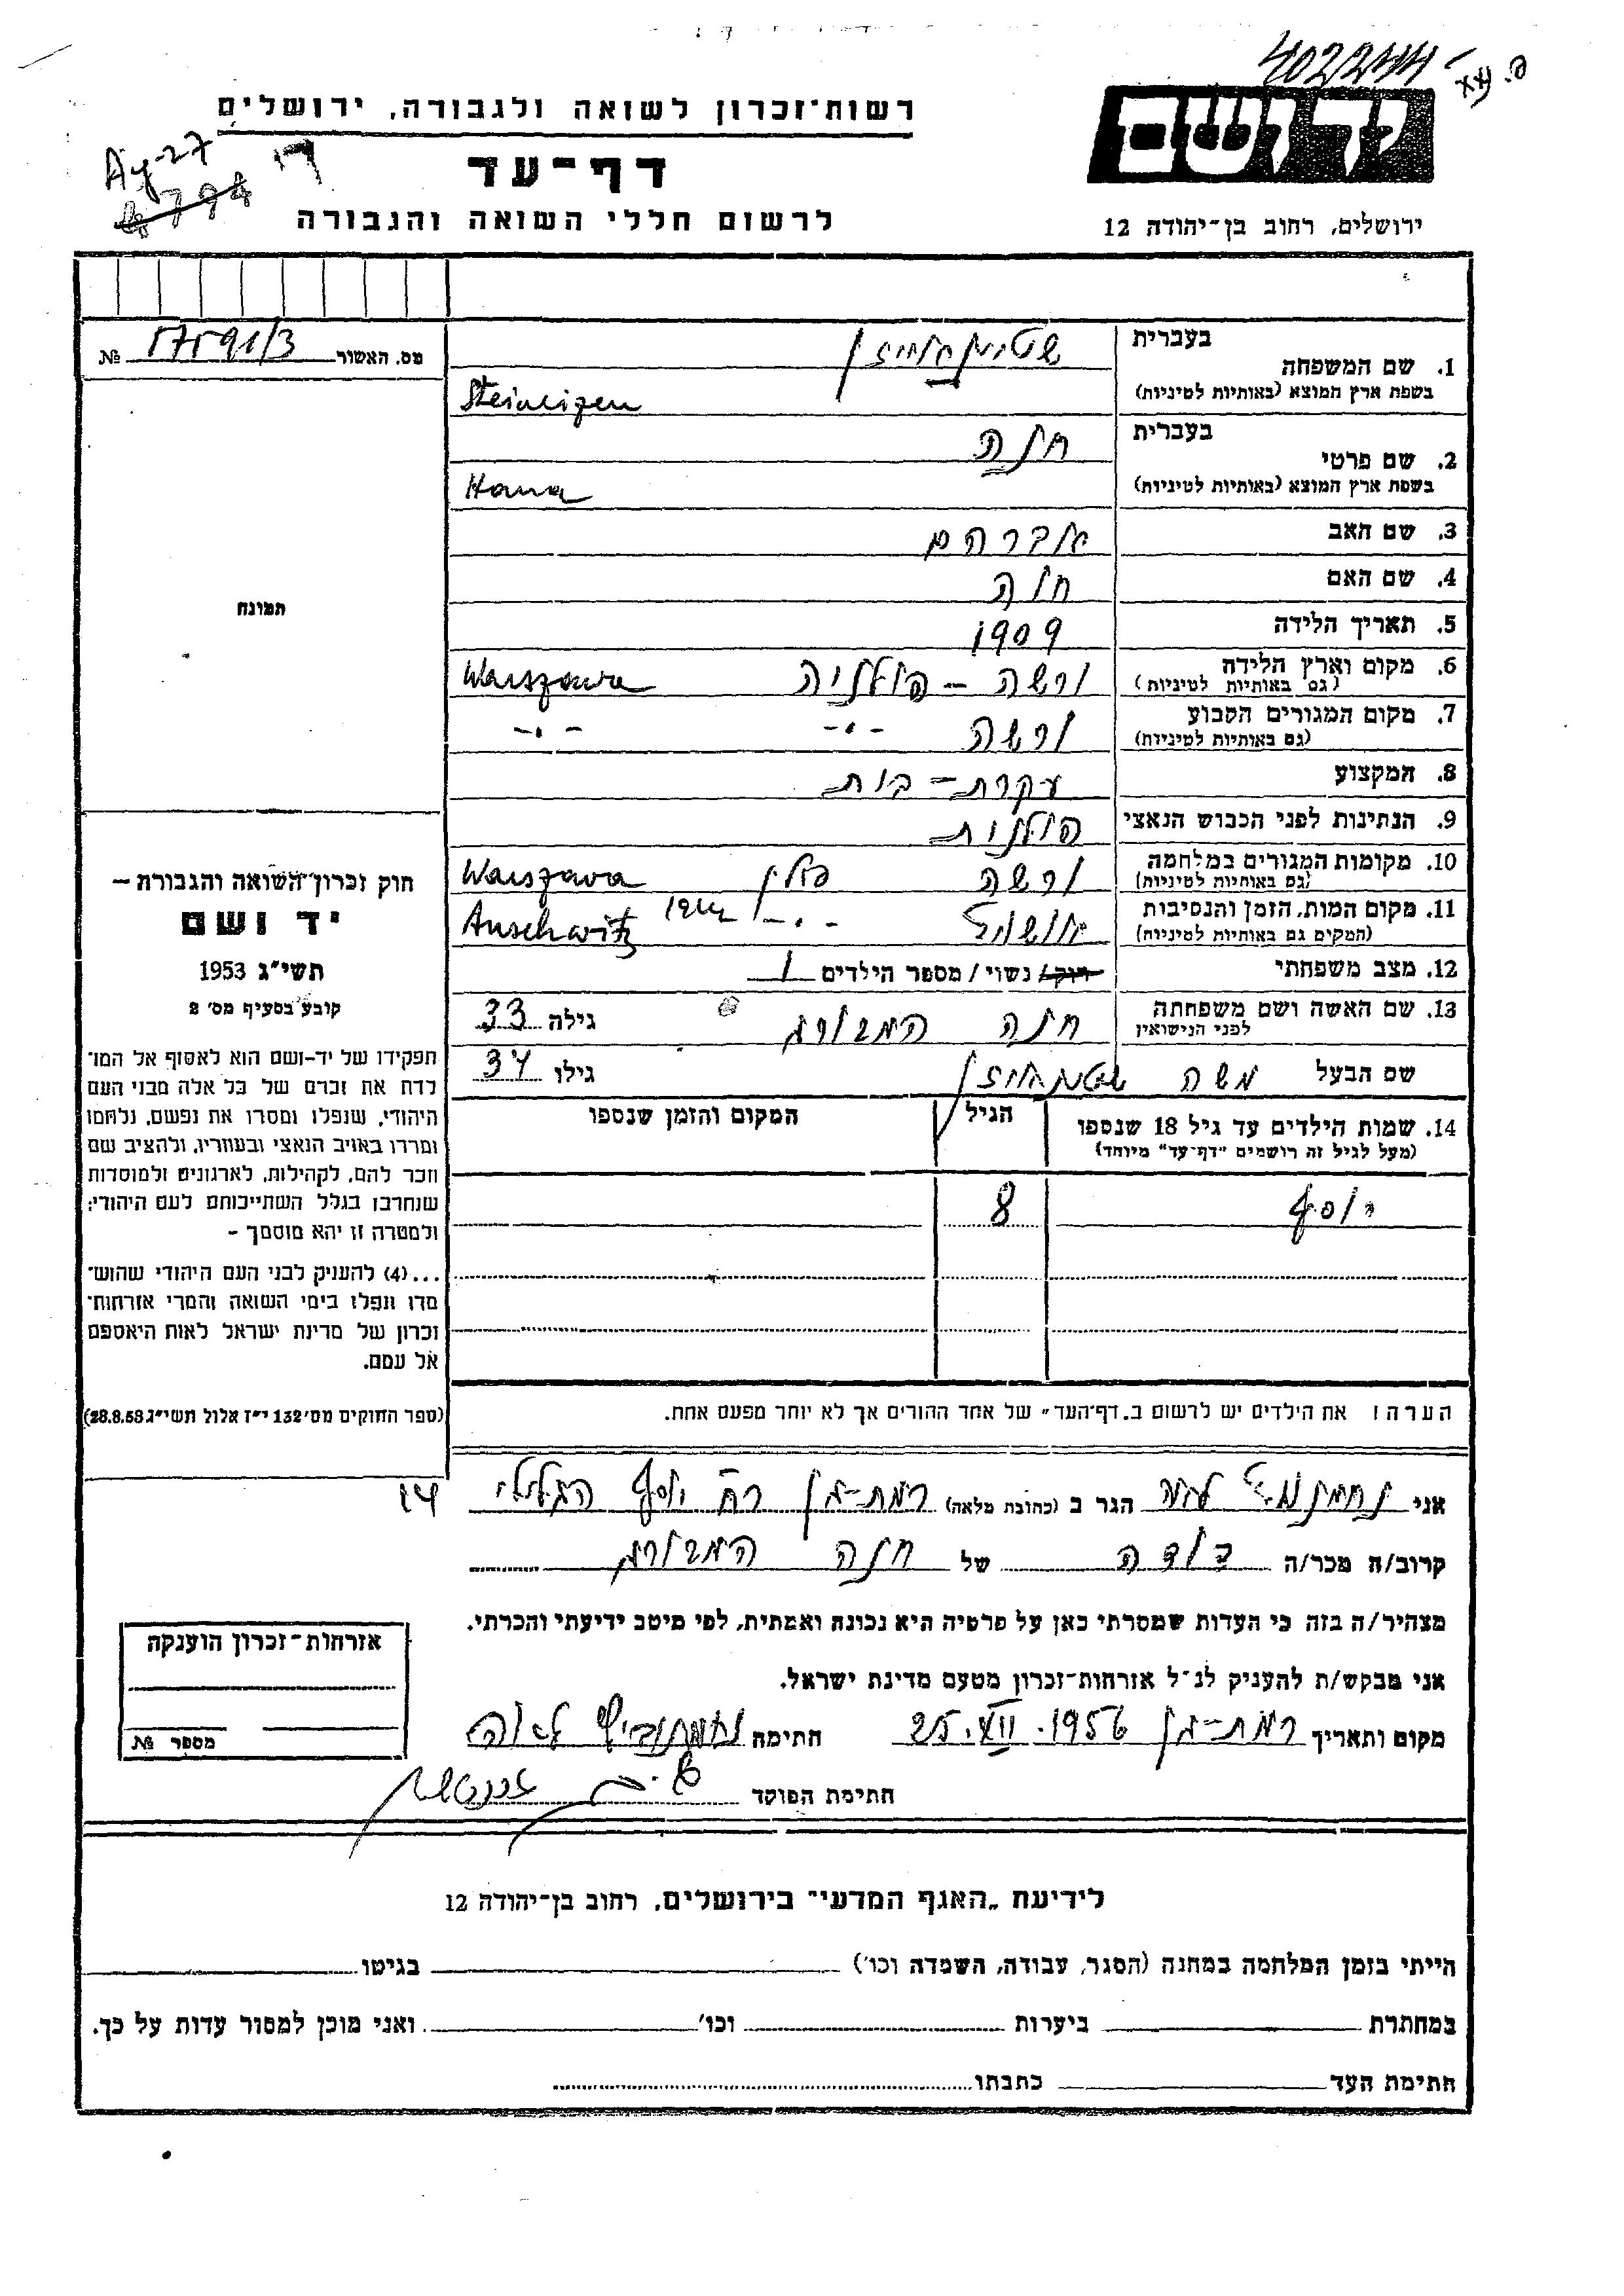 402244
יד ושם
רשות-זכרון לשואה ולגבורה, ירושלים
דף-עד
לרשום חללי השואה והגבורה
ירושלים, רחוב בן-יהודה 12
Ay-27
מס. האשור 17591/3 №
תמונה
חוק זכרון השואה והגבורה –
יד ושם
תשי״ג 1953
קובע בסעיף מס׳ 2
תפקידו של יד-ושם הוא לאסוף אל המו־
לדת את זכרם של כל אלה מבני העם
היהודי, שנפלו ומסרו את נפשם, נלחמו
ומרדו באויב הנאצי ובעוזריו, ולהציב שם
וזכר להם, לקהילות, לארגונים ולמוסדות
שנחרבו בגלל השתייכותם לעם היהודי;
ולמטרה זו יהא מוסמך –
...(4) להעניק לבני העם היהודי שהוש־
מדו ונפלו בימי השואה והמרי אזרחות־
זכרון של מדינת ישראל לאות היאספם
אל עמם.
(ספר החוקים מס׳ 132 י״ז אלול תשי״ג 28.8.53)
1. שם המשפחה
בעברית שטיינאייזן
בשפת ארץ המוצא (באותיות לטיניות) Steineizen
2. שם פרטי
בעברית חנה
בשפת ארץ המוצא (באותיות לטיניות) Hana
3. שם האב אברהם
4. שם האם חוה
5. תאריך הלידה 1909
6. מקום וארץ הלידה ורשה – פולניה Warszawa
(גם באותיות לטיניות)
7. מקום המגורים הקבוע ורשה -"- -"-
(גם באותיות לטיניות)
8. המקצוע עקרת-בית
9. הנתינות לפני הכבוש הנאצי פולנית
10. מקומות המגורים במלחמה ורשה פולין Warszawa
(גם באותיות לטיניות)
11. מקום המות, הזמן והנסיבות -"- 1942 Auschwitz
(המקום גם באותיות לטיניות)
12. מצב משפחתי רוק/ נשוי / מספר הילדים 1
13. שם האשה ושם משפחתה חנה גילה 33
לפני הנישואין
שם הבעל משה שטיינאייזן גילו 34
14. שמות הילדים עד גיל 18 שנספו הגיל המקום והזמן שנספו
(מעל לגיל זה רושמים "דף-עד" מיוחד)
יוסף 8
הערה: את הילדים יש לרשום ב„דף-העד" של אחד ההורים אך לא יותר מפעם אחת.
אני לאה הגר ב (כתובת מלאה) רמת-גן רח יוסף הגלילי 14
קרוב/ה מכר/ה דודה של חנה
מצהיר/ה בזה כי העדות שמסרתי כאן על פרטיה היא נכונה ואמתית, לפי מיטב ידיעתי והכרתי.
אני מבקש/ת להעניק לנ״ל אזרחות-זכרון מטעם מדינת ישראל.
מקום ותאריך רמת-גן 25.XII.1956 חתימה לאה
חתימת הפוקד
אזרחות-זכרון הוענקה
מספר №
לידיעת „האגף המדעי" בירושלים, רחוב בן-יהודה 12
הייתי בזמן המלחמה במחנה (הסגר, עבודה, השמדה וכו׳) בגיטו
במחתרת ביערות וכו׳ ואני מוכן למסור עדות על כך.
חתימת העד כתבתו